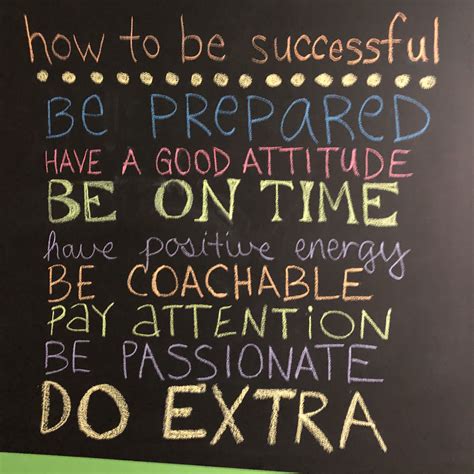 how to be successful
Be PRePaReD
HAVE A GOOD ATTITUDE
BE ON TIME
have positive energy
BE COACHABLE
Pay aTTenTION
BE PASSIONATE
DO EXTRA